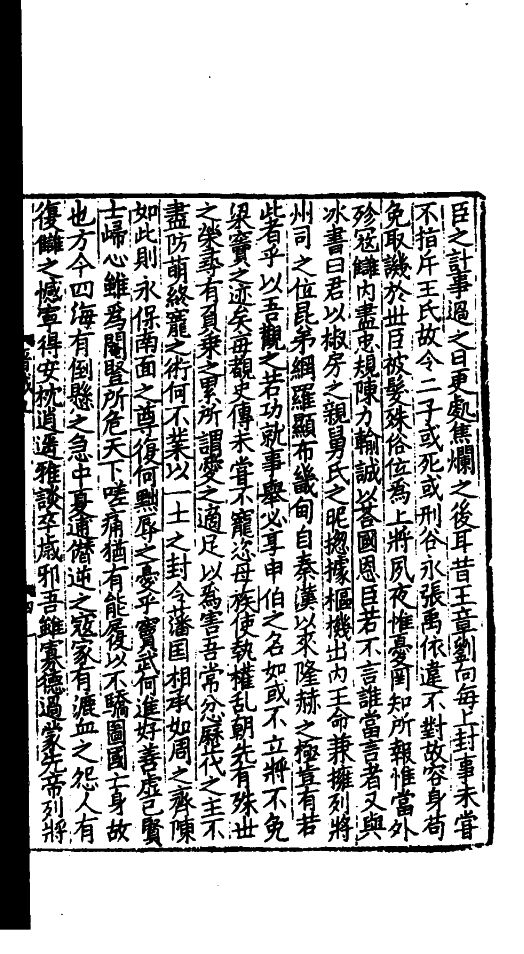 臣之計事過之日更處焦爛之後耳昔王章劉向每上封事未嘗
不指斥王氏故令二子或死或刑谷永張禹依違不對故容身苟
免取譏於世臣被髮殊俗位為上將夙夜惟憂罔知所報惟當外
殄寇讎內盡忠規陳力輸誠以荅國恩臣若不言誰當言者又與
冰書曰君以椒房之親舅氏之昵揔據樞機出內王命兼擁列將
州司之位昆弟綱羅顯布畿甸自秦漢以來隆赫之極豈有若
此者乎以吾觀之若功就事舉必享申伯之名如或不立將不免
梁竇之迹矣每覩史傳未嘗不寵恣母族使執權乱朝先有殊世
之榮尋有負乗之累所謂愛之適足以為害吾常忿歷代之主不
盡防萌終寵之術何不業以一土之封令藩国相承如周之齊陳
如此則永保南面之尊復何黜辱之憂乎竇武何進好善虚己賢
士歸心雖為閹豎所危天下嗟痛猶有能履以不驕圖國亡身故
也方今四海有倒懸之急中夏逋僭逆之寇家有漉血之怨人有
復讎之憾寧得安枕逍遥雅談卒歲邪吾雖寡德過蒙先帝列將